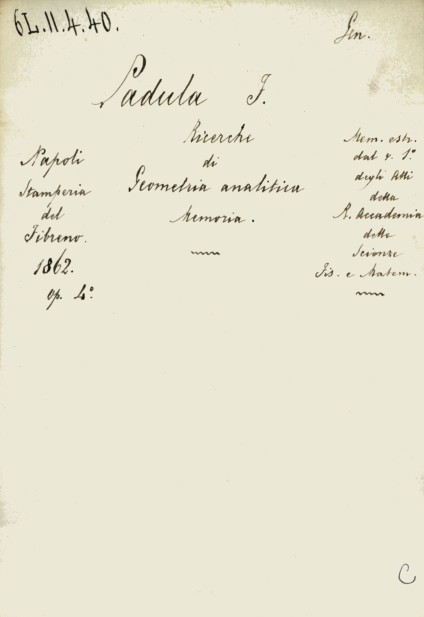 6L.II.4.40.
Gen.
Padula F.
Ricerche
di
Geometria analitica
Memoria.
Napoli
Stamperia
del
Fibreno.
1862.
op. 4º.
Mem. estr.
dal v. 1º
degli Atti
della
R. Accademia
delle
Scienze
Fis. e Matem.
C